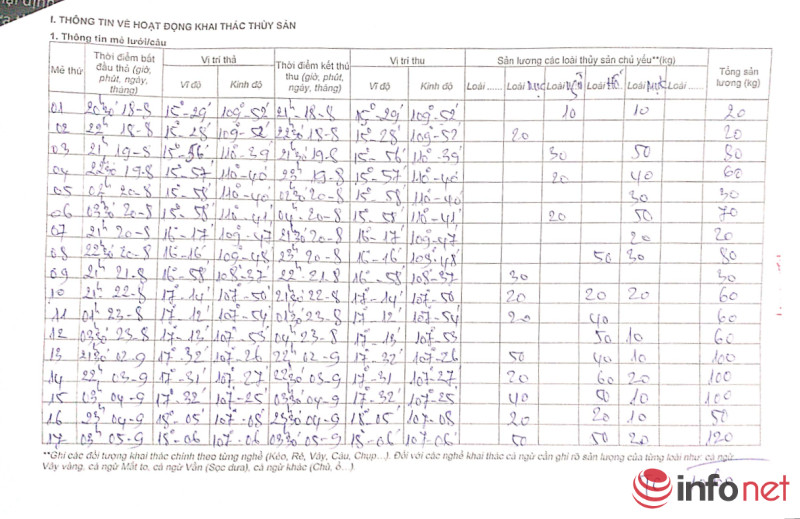 I. THÔNG TIN VỀ HOẠT ĐỘNG KHAI THÁC THỦY SẢN
1. Thông tin mẻ lưới/câu
Mẻ thứ Thời điểm bắt đầu thả (giờ, phút, ngày, tháng) Vị trí thả Thời điểm kết thúc thu (giờ, phút, ngày, tháng) Vị trí thu Sản lượng các loài thủy sản chủ yếu**(kg) Tổng sản lượng (kg)
Vĩ độ Kinh độ Vĩ độ Kinh độ Loài ...... Loài Mực Loài Loài Hố Loài Mực Loài ......
01 20h30' 18-8 15°-29' 109°-52' 21h 18-8 15°-29' 109°-52' 10 10 20
02 22h 18-8 15°-28' 109°-52' 22h30 18-8 15°-28' 109°-52 20 20
03 21h 19-8 15°-56' 110°-39' 21h30 19-8 15°-56' 110°-39' 30 50 80
04 22h30 19-8 15°-57' 110°-40' 23h 19-8 15°-57' 110°-40' 20 40 60
05 02h 20-8 15°-58' 110°-40' 02h30 20-8 15°-58' 110°-40 30 30
06 03h30 20-8 15°-58' 110°-41' 04h 20-8 15°-58' 110°-41' 20 50 70
07 21h 20-8 16°-17' 109°-47' 21h30 20-8 16°-17' 109°-47' 20 20
08 22h30 20-8 16°-16' 109°-48' 23h 20-8 16°-16' 108°-48' 50 30 80
09 21h 21-8 16°-58' 108°-37' 22h 21-8 16°-58' 108°-37 30 30
10 21h 22-8 17°-14' 107°-50' 21h30 22-8 17°-14' 107°-50 20 20 20 60
11 01h 23-8 17°-12' 107°-54' 01h30 23-8 17°-12' 107°-54' 20 40 60
12 03h30 23-8 17°-13' 107°-53' 04h 23-8 17°-13' 107°-53 50 10 60
13 21h30 02-9 17°-32' 107°-26 22h 02-9 17°-32' 107°-26 50 40 10 100
14 22h 03-9 17°-31' 107°-27' 22h30 03-9 17°-31 107°-27 20 60 20 100
15 03h 04-9 17°-32' 107°-25' 03h30 04-9 17°-32' 107°-25 40 50 10 100
16 23h 04-9 18°-05' 107°-08' 23h30 04-9 18°-05' 107°-08 20 20 10 50
17 03h 05-9 18°-06 107°-06' 03h30 05-9 18°-06' 107°-06' 50 50 20 120
**Ghi các đối tượng khai thác chính theo từng nghề (Kéo, Rê, Vây, Câu, Chụp...). Đối với các nghề khai thác cá ngừ cần ghi rõ sản lượng của từng loài như: cá ngừ
Vây vàng, cá ngừ Mắt to, cá ngừ Vằn (Sọc dưa), cá ngừ khác (Chù, ồ...).
infonet